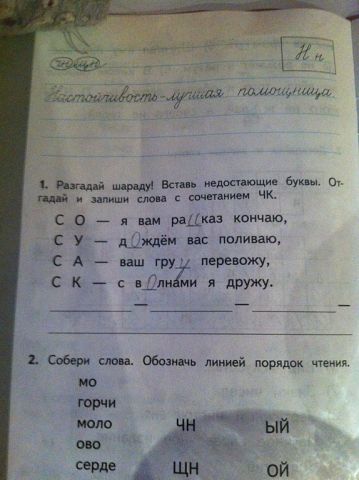 Н н
Настойчивость - лучшая помощница.
1. Разгадай шараду! Вставь недостающие буквы. От-
гадай и запиши слова с сочетанием ЧК.
С О — я вам расказ кончаю,
С У — дОждём вас поливаю,
С А — ваш гру у перевожу,
С К — с вОлнами я дружу.
2. Собери слова. Обозначь линией порядок чтения.
мо
горчи
моло ЧН ЫЙ
ово
серде ЩН ОЙ